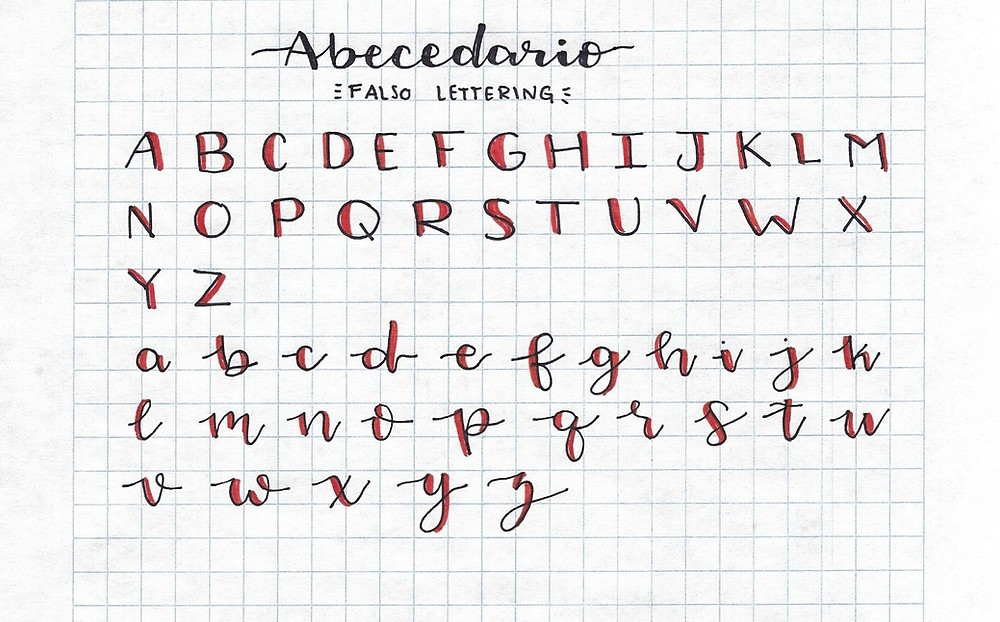 Abecedario
FALSO LETTERING
A B C D E F G H I J K L M
N O P Q R S T U V W X
Y Z
a b c d e f g h i j k
l m n o p q r s t u
v w x y z